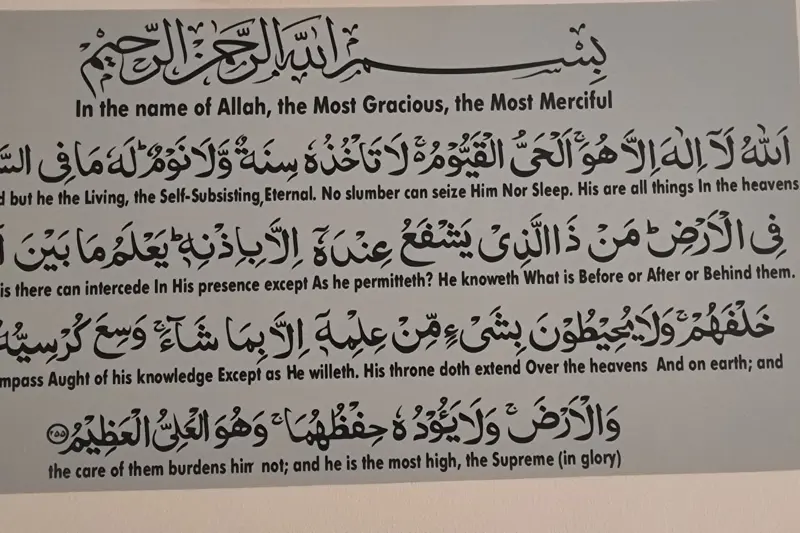 بِسْمِ اللهِ الرَّحْمٰنِ الرَّحِيْمِ
In the name of Allah, the Most Gracious, the Most Merciful
اَللهُ لَآ اِلٰهَ اِلَّا هُوَ ۚ اَلْحَىُّ الْقَيُّوْمُ ۚ لَا تَاْخُذُهٗ سِنَةٌ وَّلَا نَوْمٌ ؕ لَهٗ مَا فِى
but he the Living, the Self-Subsisting,Eternal. No slumber can seize Him Nor Sleep. His are all things In the heavens
فِى الْاَرْضِ ؕ مَنْ ذَا الَّذِىْ يَشْفَعُ عِنْدَهٗٓ اِلَّا بِاِذْنِهٖ ؕ يَعْلَمُ مَا بَيْنَ
is there can intercede In His presence except As he permitteth? He knoweth What is Before or After or Behind them.
خَلْفَهُمْ ۚ وَلَا يُحِيْطُوْنَ بِشَىْءٍ مِّنْ عِلْمِهٖٓ اِلَّا بِمَا شَآءَ ۚ وَسِعَ كُرْسِيُّهُ
mpass Aught of his knowledge Except as He willeth. His throne doth extend Over the heavens And on earth; and
وَالْاَرْضَ ۚ وَلَا يَـُٔوْدُهٗ حِفْظُهُمَا ۚ وَهُوَ الْعَلِىُّ الْعَظِيْمُ ﴿۲۵۵﴾
the care of them burdens him not; and he is the most high, the Supreme (in glory)